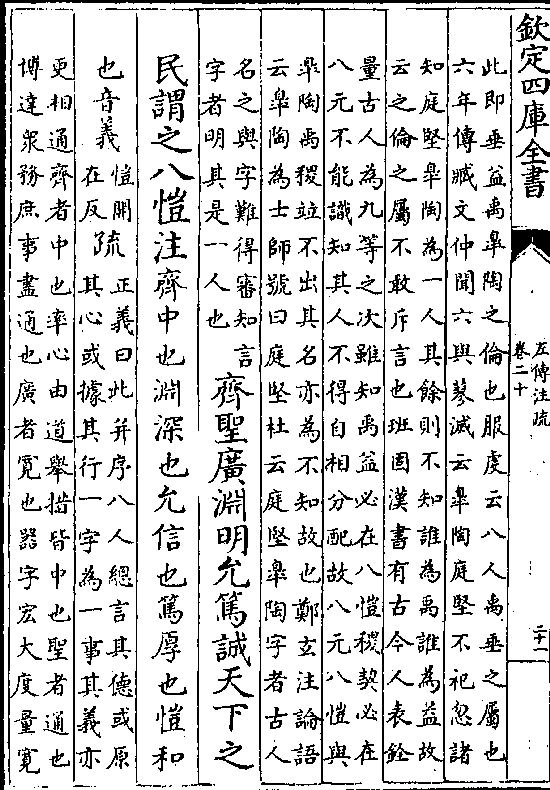 欽定四庫全書
左傳注疏
卷二十
二十一
此即垂益禹皋陶之倫也服虔云八人禹垂之屬也
六年傳臧文仲聞六與蓼滅云皋陶庭堅不祀忽諸
知庭堅皋陶為一人其餘則不知誰為禹誰為益故
云之倫之屬不敢斥言也班固漢書有古今人表銓
量古人為九等之次雖知禹益必在八愷稷契必在
八元不能識知其人不得自相分配故八元八愷與
皋陶禹稷竝不出其名亦為不知故也鄭玄注論語
云皋陶為士師號曰庭堅杜云庭堅皋陶字者古人
名之與字難得審知言
字者明其是一人也
齊聖廣淵明允篤誠天下之
民謂之八愷注齊中也淵深也允信也篤厚也愷和
也音義
愷開
在反
疏
正義曰此并序八人總言其德或原
其心或據其行一字為一事其義亦
更相通齊者中也率心由道舉措皆中也聖者通也
博達衆務庶事盡通也廣者寬也器字宏大度量寬